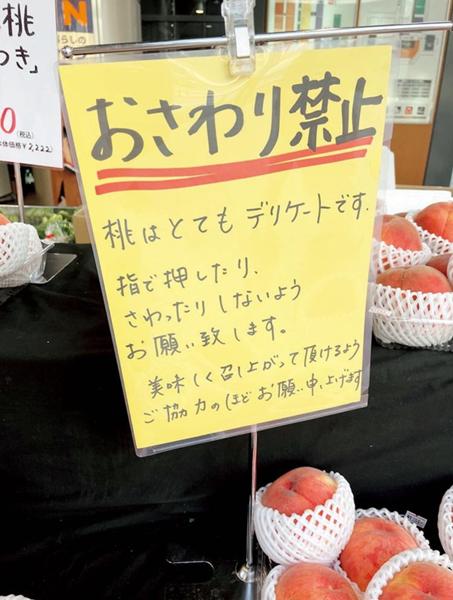 桃
つき」
0
(税込)
体価格¥2,222)
N
らしの
おさわり禁止
桃はとてもデリケートです.
指で押したり、
さわったりしないよう
お願い致します。
美味しく召し上がって頂けるよう
ご協力のほどお願い申し上げます